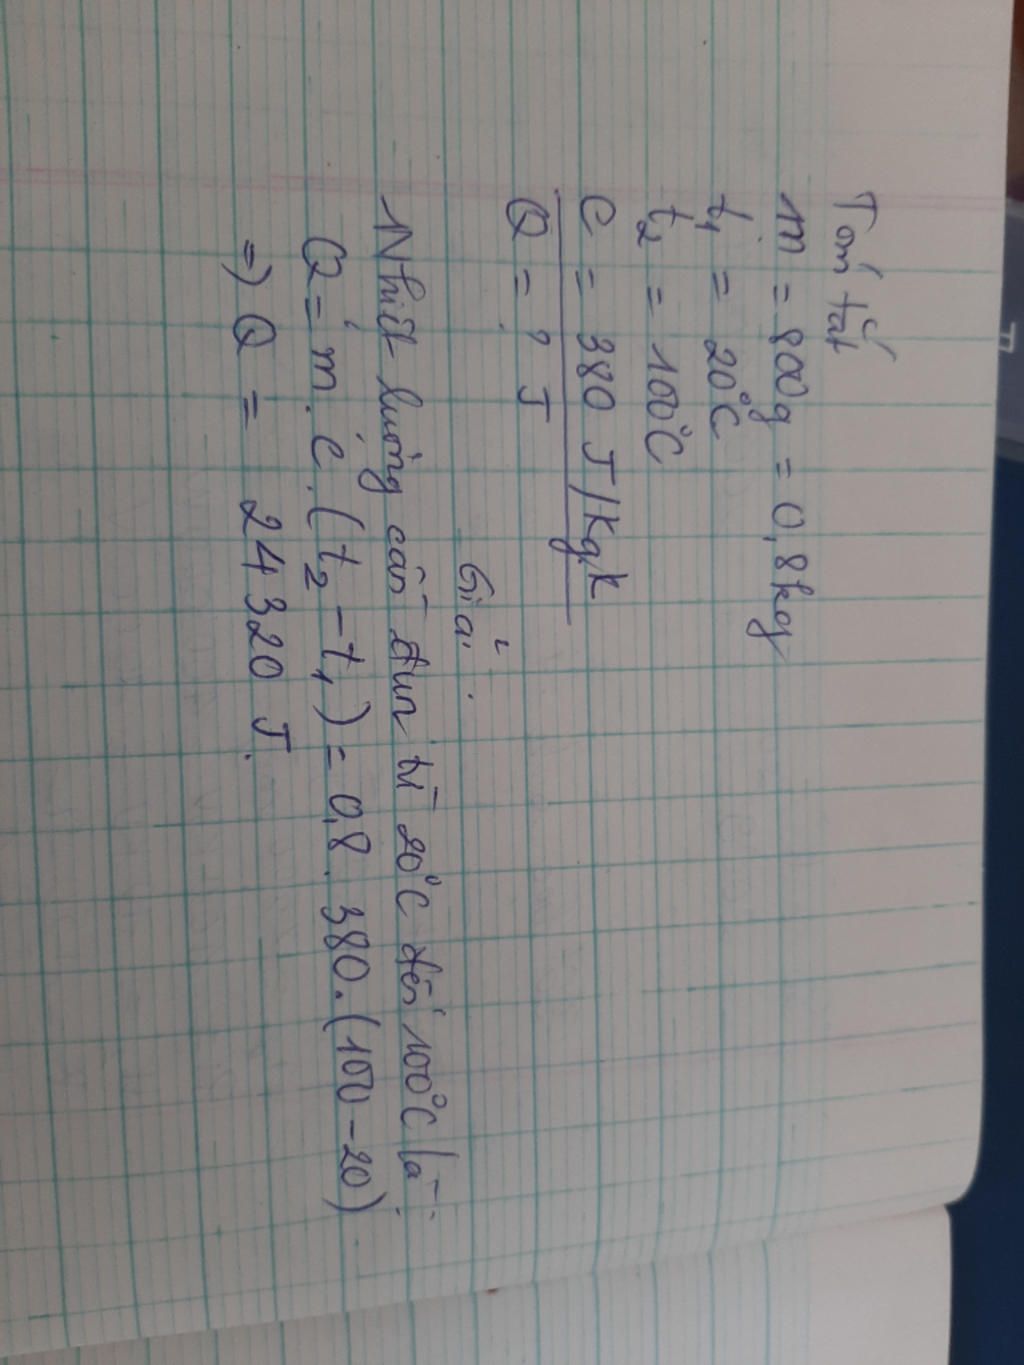 Tóm tắt
m = 800g = 0,8kg
t1 = 20°C
t2 = 100°C
C = 380 J/kg.k
Q = ? J
Giải:
Nhiệt lượng cần đun từ 20°C đến 100°C là:
Q = m.c.(t2 - t1) = 0,8.380.(100 - 20)
=> Q = 24320 J.